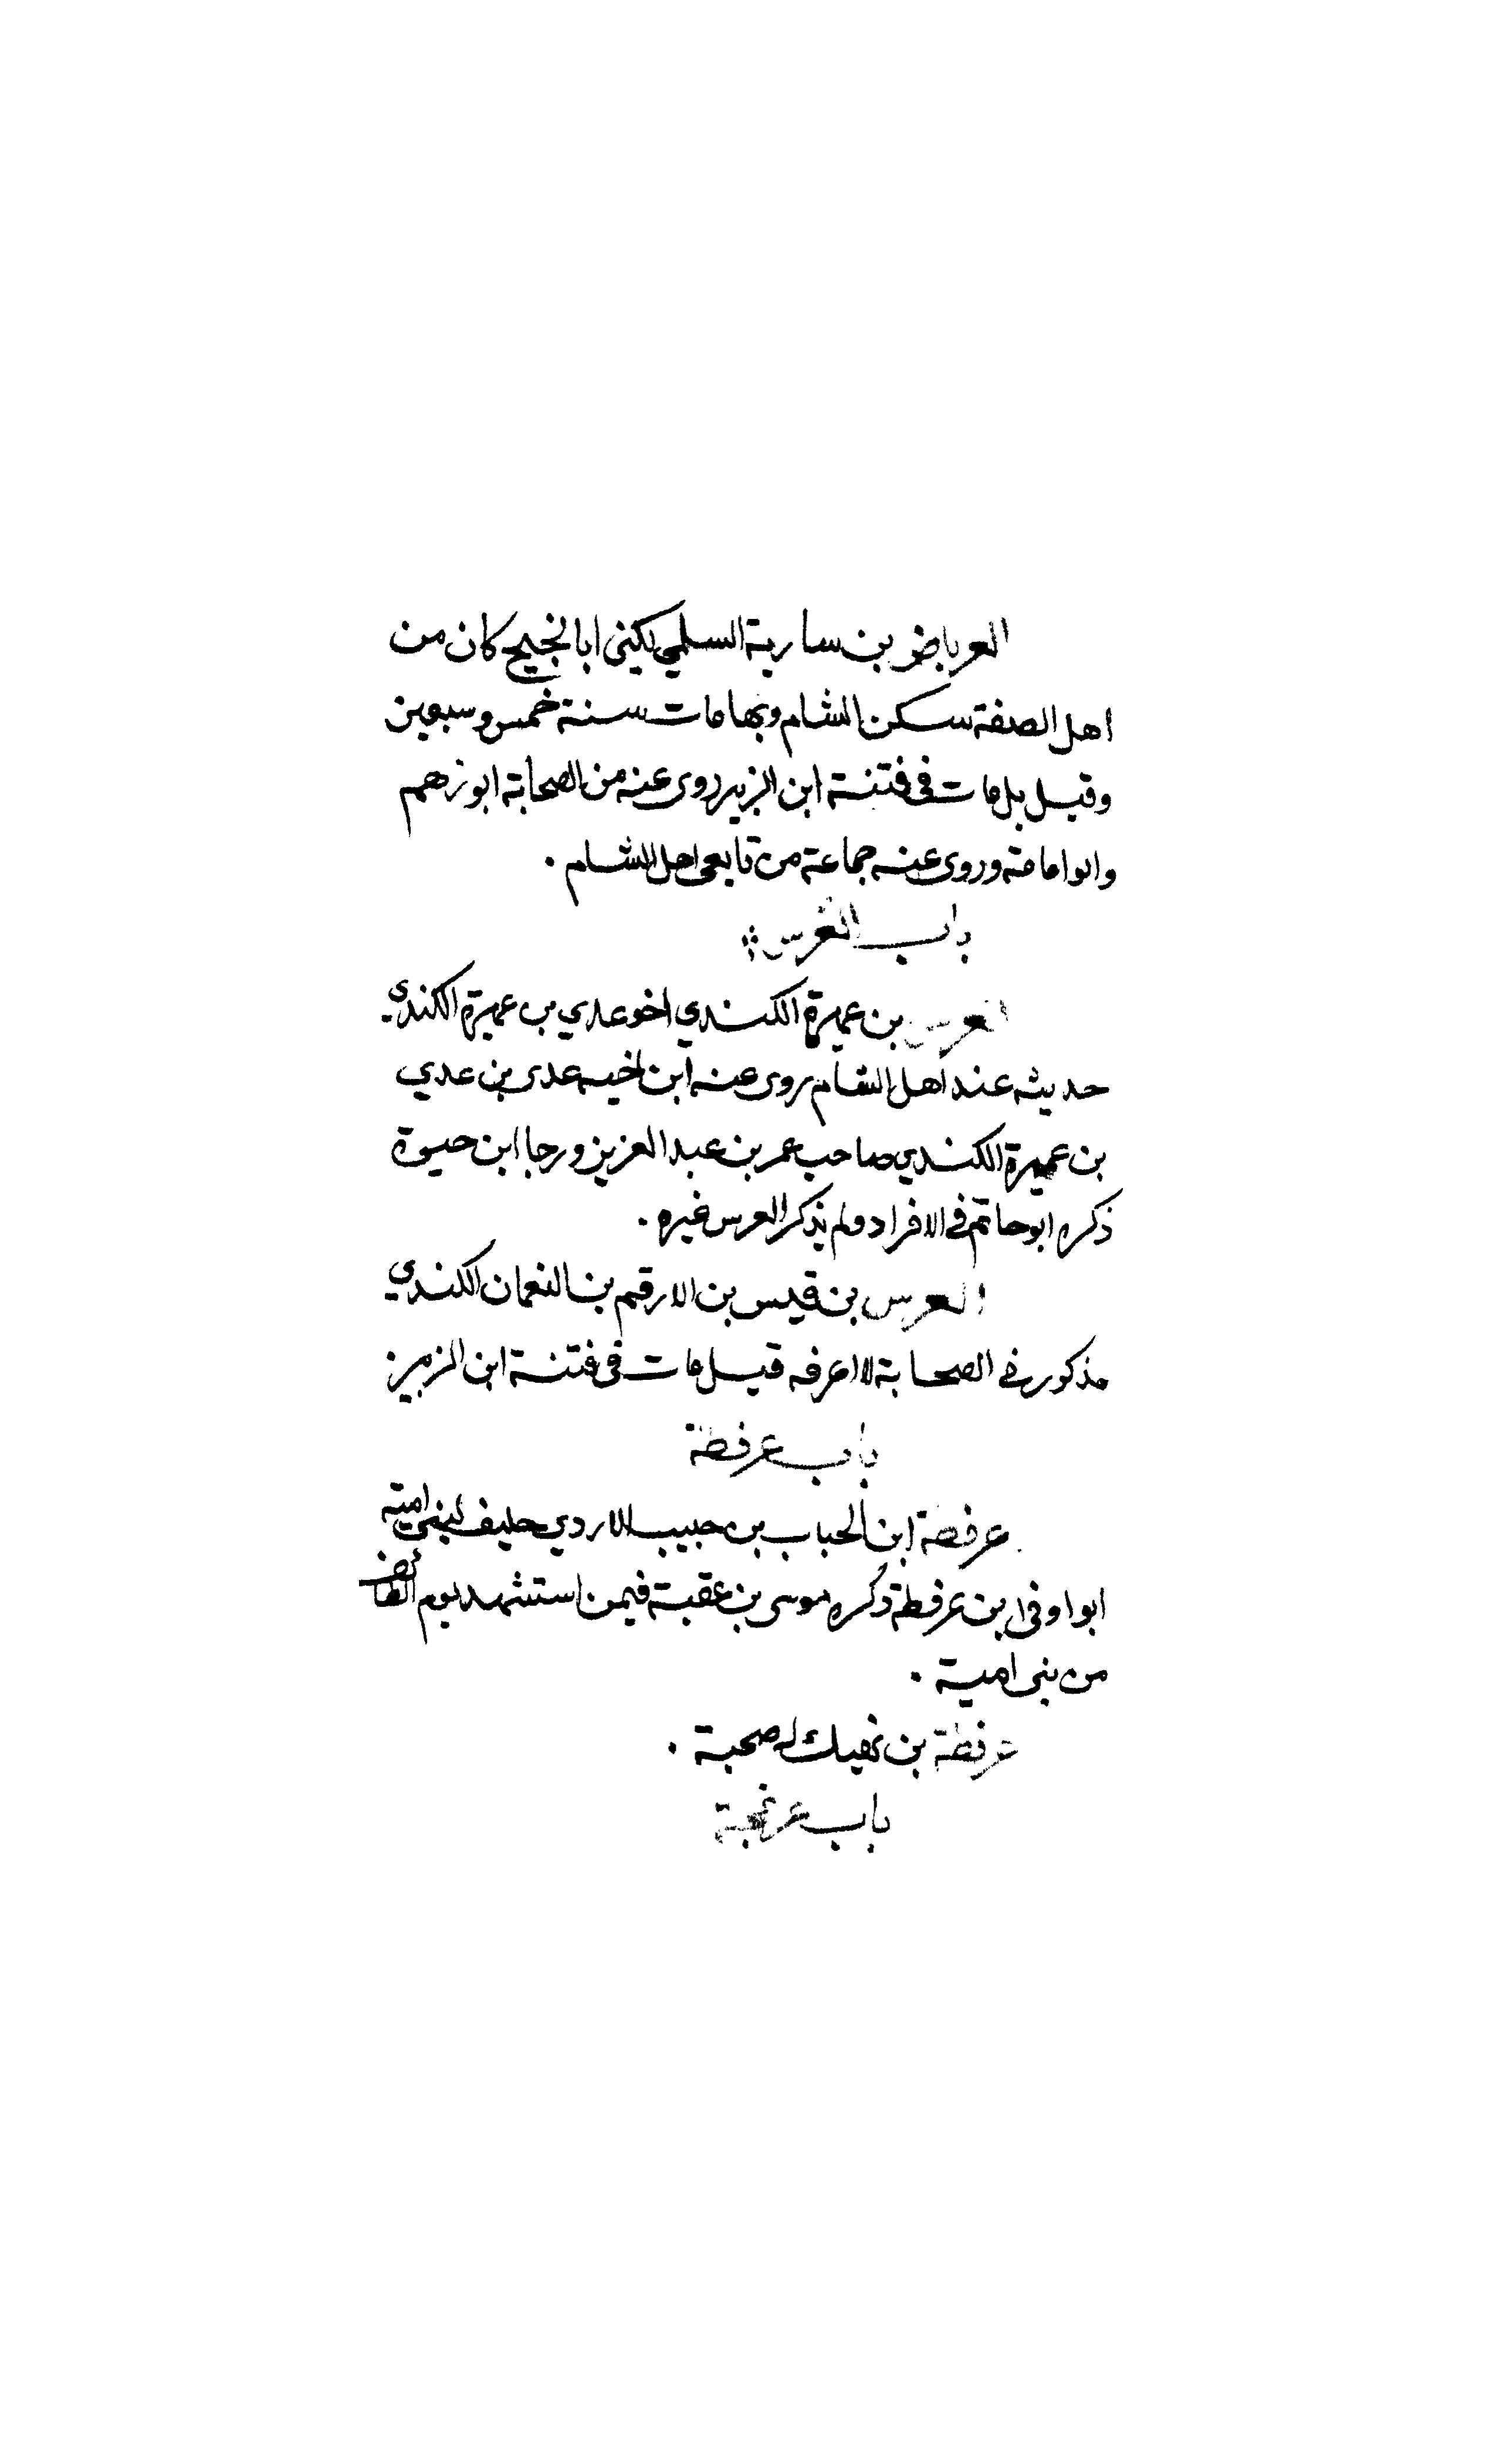 العرباض بن سارية السلمي يكنى ابا نجيح كان من
اهل الصفة سكن الشام وبها مات سنة خمس وسبعين
وقيل بل مات فى فتنة ابن الزبير روى عنه من الصحابة ابو زهم
وابو امامة وروى عنه جماعة من تابعى اهل الشام .
باب العرس
العرس بن عميرة الكندي اخو عدي بن عميرة الكندي
حديثه عند اهل الشام روى عنه ابن اخيه عدى بن عدي
بن عميرة الكندي صاحب عمر بن عبد العزيز ورجا ابن حيوة
ذكره ابو حاتم في الافراد ولم يذكر العرس غيره .
العرس بن قيس بن الارقم بن النعمان الكندي
مذكور في الصحابة لا اعرفه قيل مات فى فتنة ابن الزبير
باب عرفطة
عرفطة ابن الحباب بن حبيب الازدي حليف لبنى امية
ابو اوفى ابن عرفطة ذكره موسى بن عقبة فيمن استشهد يوم الطائف
من بنى امية .
عرفطة بن نهيك له صحبة .
باب عرفجة